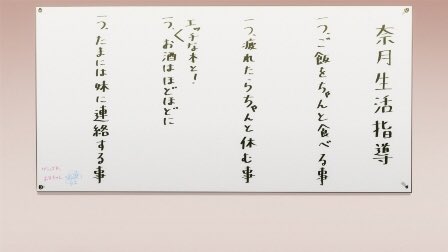 奈月生活指導
一つ、ご飯をちゃんと食べる事
一つ、疲れたらちゃんと休む事
エッチな本と!
一つ、お酒はほどほどに
一つ、たまには妹に連絡する事